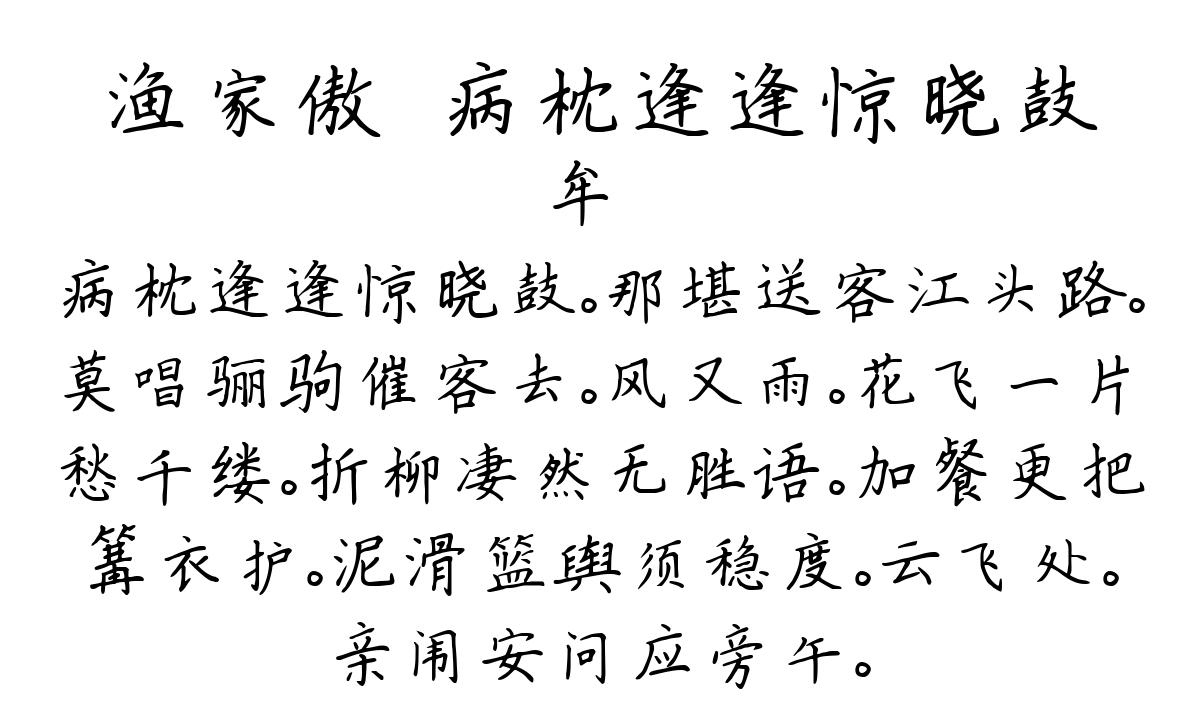 渔家傲 病枕逢逢惊晓鼓
牟
病枕逢逢惊晓鼓。那堪送客江头路。
莫唱骊驹催客去。风又雨。花飞一片
愁千缕。折柳凄然无胜语。加餐更把
篝衣护。泥滑篮舆须稳度。云飞处。
亲闱安问应旁午。